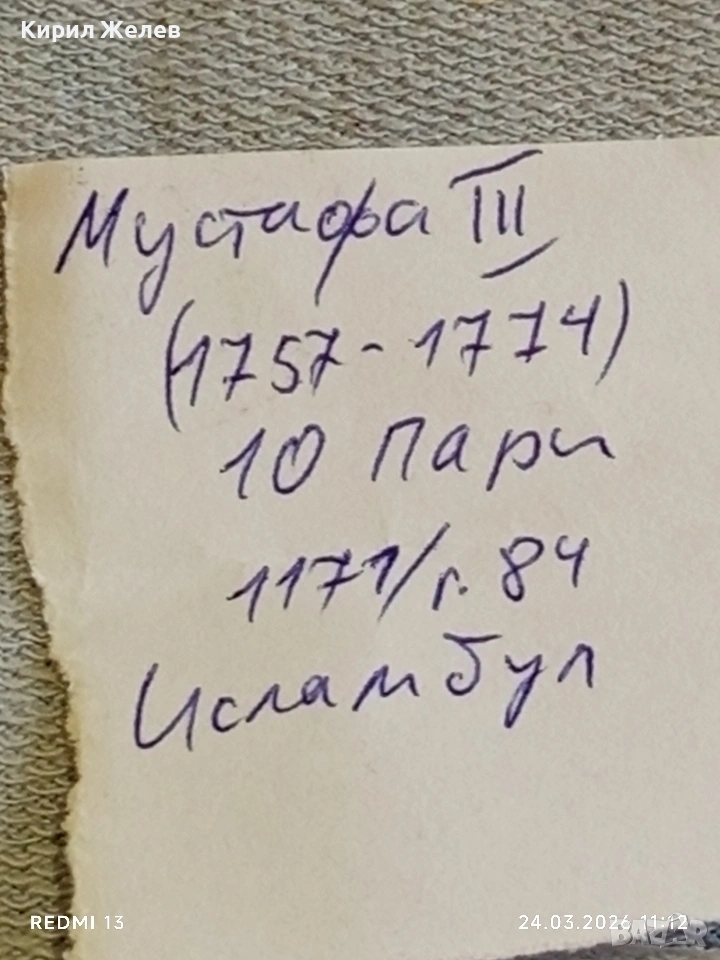 Кирил Желев
Мустафа III
(1757-1774)
10 пари
1171/г. 84
Исламбул
REDMI 13
24.03.2026 11:12
BAZAR